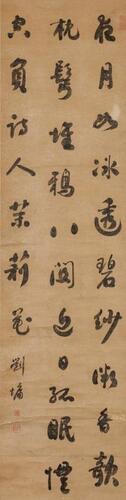 夜月如冰透碧紗微香欹
枕鬢堆鴉八關近日孤眠慣
空負詩人茉莉花
劉墉